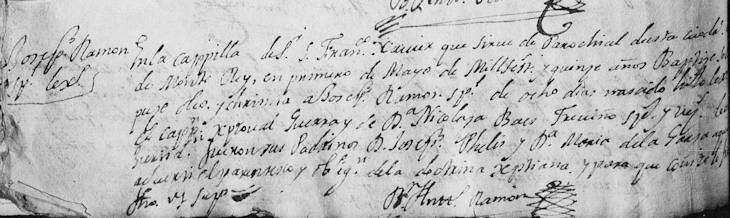 Joseph Ramon
esp. lexto
En la cappilla del S. S. Franco Xavier que sirve de Parochial de esta ciudad
de Monte Rey, en primero de Mayo de Mill Setts y quinze años Baptize
puse oleo y chrisma a Joseph Ramon espl. de ocho dias nasido hijo lexto
el cappn Xptoval Guerra y de Da Nicolasa Baes Treviño espl. y vez.
fueron sus Padrinos D. Joseph Phelis y Da Maria de la Garza
advertiles el parentesco y obligon de la doctrina Xptiana. y para que conste lo
fho. ut supra
Br. Ramon